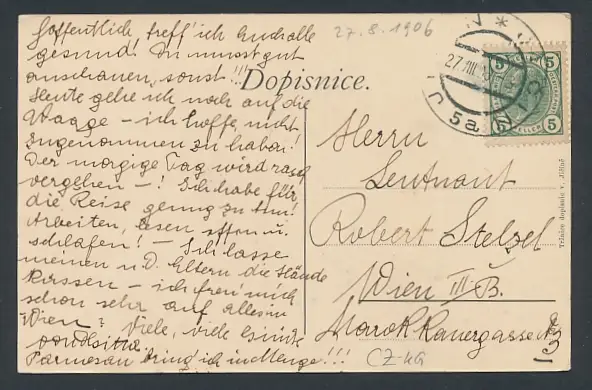 Hoffentlich treff' ich Euch alle
gesund! Du musst gut
ausschauen, sonst!!!
Heute gehe ich noch auf die
Waage – ich hoffe, nicht
zugenommen zu haben!
Der morgige Tag wird rasch
vergehen –! Ich habe für
die Reise genug zu tun:
Arbeiten, lesen, essen u.
schlafen! – Ich lasse
meinen u. D. Eltern die Hände
küssen – ich freu' mich
schon sehr auf alles in
Wien! Viele, viele
Parmesan bring' ich in Menge!!!
27.8.1906
Dopisnice.
27.VIII
5a
5 5
5 5
HELLER
Herrn
Leutnant
Robert Stelzel
Wien III B.
CZ-49